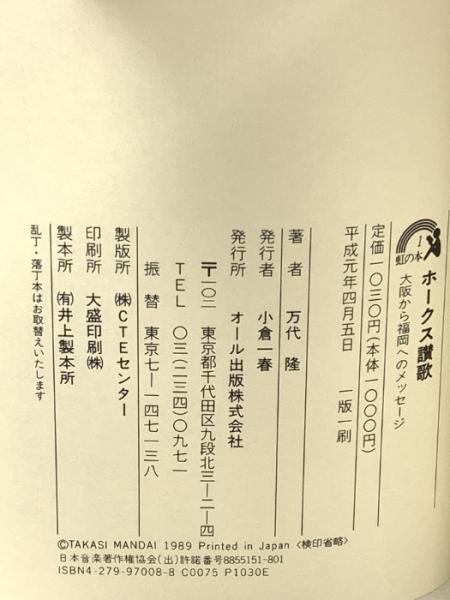 1
虹の本
ホークス讃歌
大阪から福岡へのメッセージ
定価一〇三〇円(本体一〇〇〇円)
平成元年四月五日　一版一刷
著者　万代　隆
発行者　小倉一春
発行所　オール出版株式会社
〒一〇二　東京都千代田区九段北三−二−四
TEL　〇三(二三四)〇九七一
振替　東京七−一四七一三八
製版所　㈱CTEセンター
印刷所　大盛印刷㈱
製本所　㈲井上製本所
乱丁・落丁本はお取替えいたします
©TAKASI MANDAI 1989 Printed in Japan〈検印省略〉
日本音楽著作権協会(出)許諾番号8855151-801
ISBN4-279-97008-8 C0075 P1030E